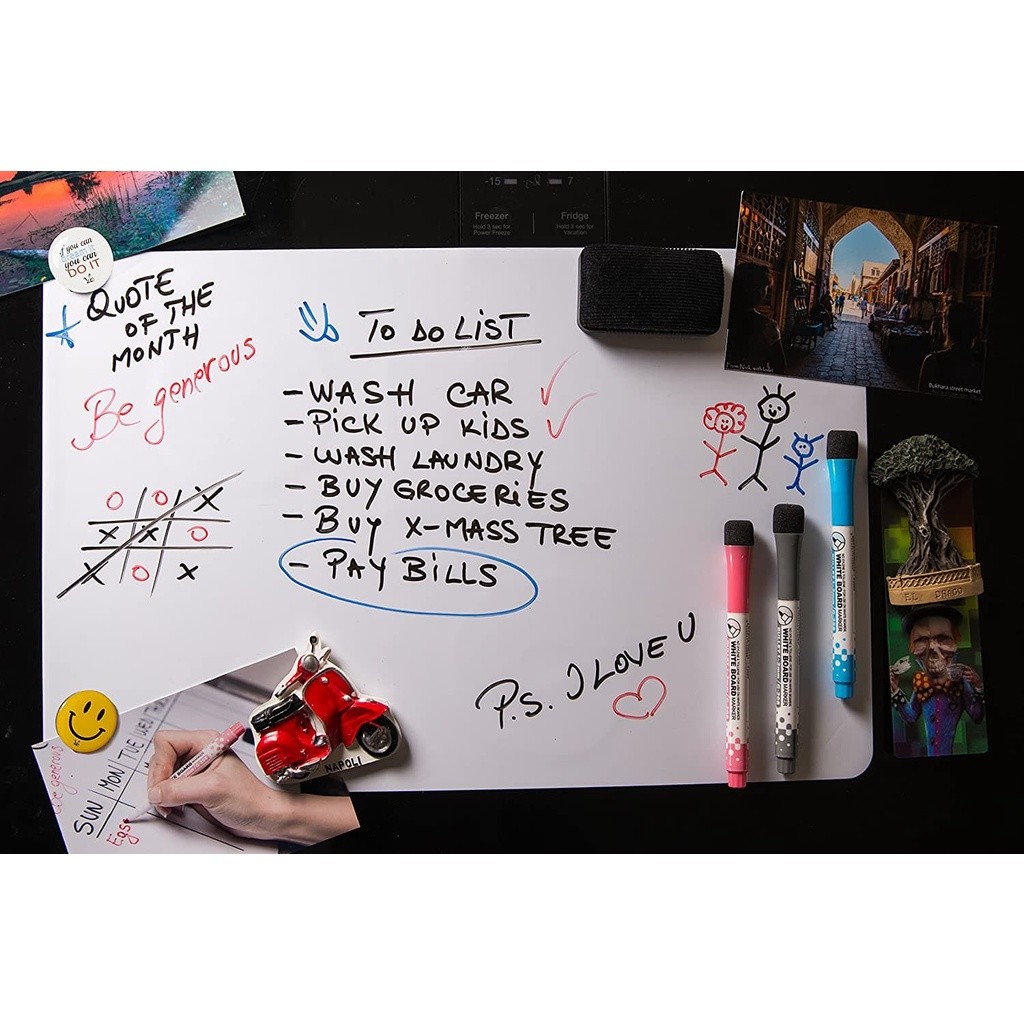 -15 7
Freezer Fridge
Hold 3 sec for Hold 3 sec for
Power Freeze Vacation
if you can
dream it
you can
DO IT
QUOTE
OF THE
MONTH
Be generous
TO DO LIST
- WASH CAR
- PICK UP KIDS
- WASH LAUNDRY
- BUY GROCERIES
- BUY X-MASS TREE
- PAY BILLS
O O X
X X O
X O X
P.S. I LOVE U
Bukhara street market
WHITE BOARD
MARKER
WHITE BOARD
MARKER
WHITE BOARD
MARKER
EL DRAGO
NAPOLI
Be generous
SUN MON TUE WED